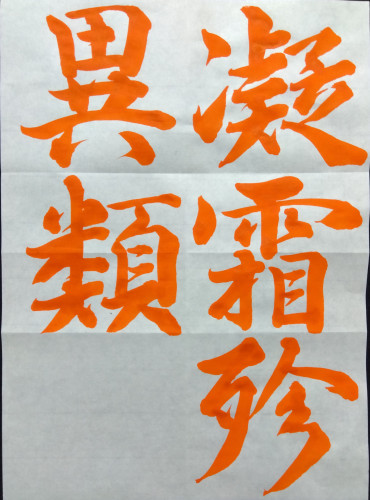 凝霜殄
異類